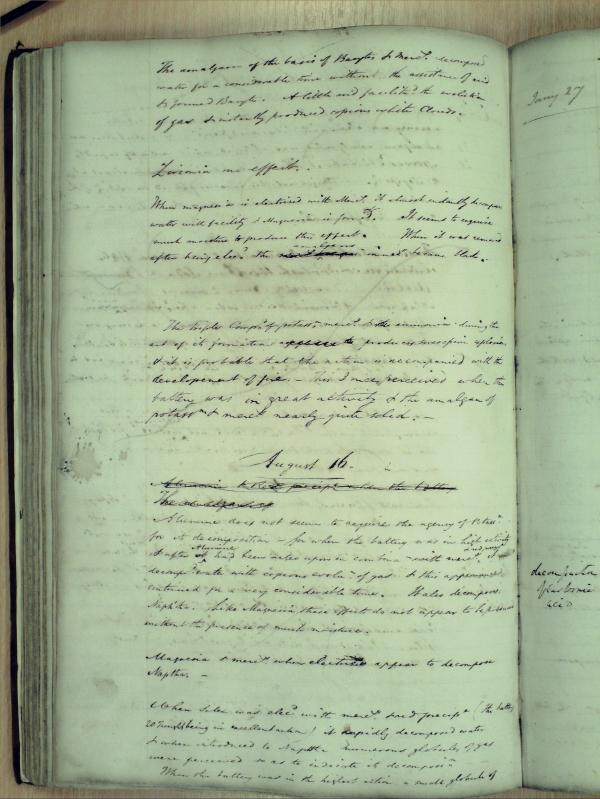 The amalgam of the basis of Barytes & Merc.y decomposed
water for a considerable time without the assistance of acid
& formed Baryte. A little acid facilitd. the evolution
of gas & instantly produced copious white Clouds.
Zirconia no effect.
When magnesia is electrised with Merc.y it almost instantly decomposes
water with facility & Magnesia is formed. It seems to require
much moisture to produce this effect. When it was removed
after being elecd. the amalgam immed. became black.
The triple Compd. of potassm. mercy. & the ammonia during the
act of its formation produces explosions
& it is probable that the action is accompanied with the
developement of fire. — This I once perceived when the
battery was in great activity & the amalgam of
potassm. & mercy. nearly quite solid. —
August 16.
Alumine & Red precipt. when the battery
The amalgam of
Alumine does not seem to require the agency of Potassm.
for its decomposition — for when the battery was in high activity
& after Alumine had been acted upon in contact with mercy.
decompd. water with copious evolutn. of gas & this appearance
continued for a very considerable time. It also decomposes
Naphtha. Like Magnesia, these effects do not appear to be produced
without the presence of much moisture.
Magnesia & mercy. when electrised appear to decompose
Naptha. —
When silex was elecd. with mercy. & red precipt. (the battery
20 Troughs being in excellent action) it rapidly decomposed water
& when introduced to Naphtha numerous globules of gas
were perceived so as to indicate its decompositn.
When the battery was in the highest action a small globule of
Jany 27
decomposition
of carbonic
acid